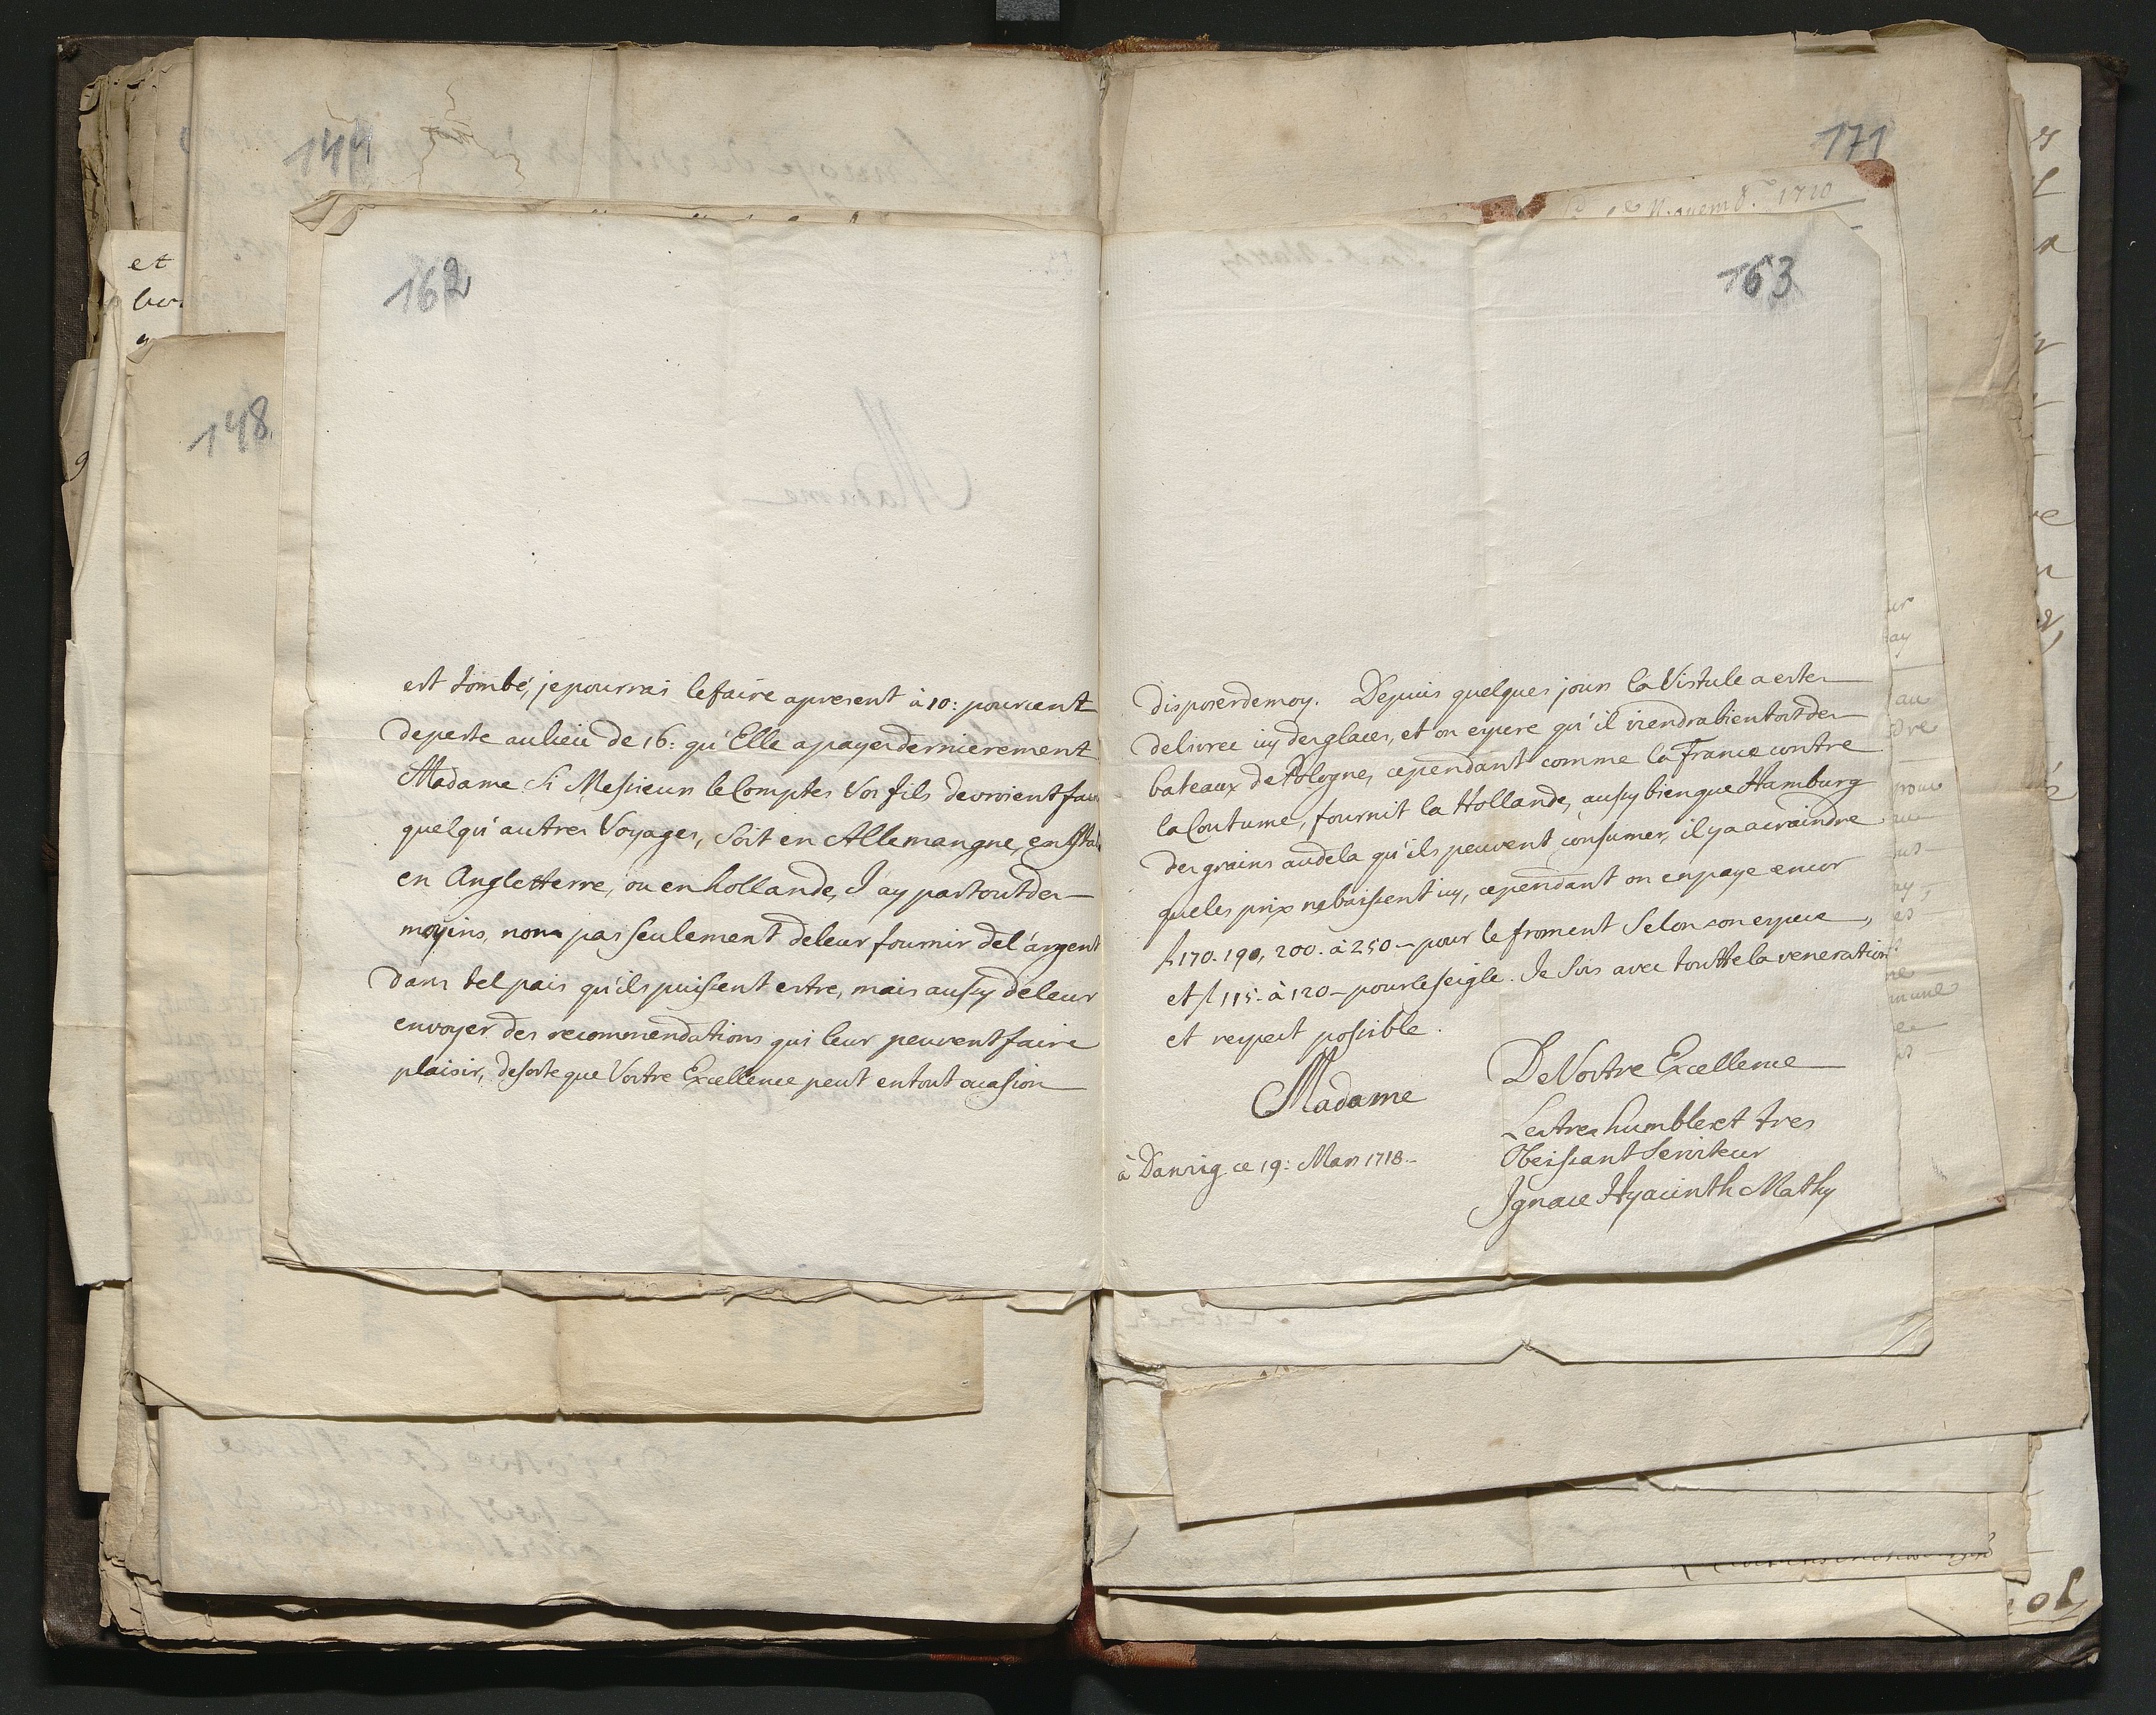 144
162
148
et
est tombé, je pourrai le faire apresent à 10: pourcent
de perte au lieu de 16: qu'Elle a payer dernierement
Madame Si Messieurs le Comptes Vos fils devroient fair
quelqu'autres Voyages, Soit en Allemangne, en Ital
en Angletterre, ou en hollande, J'ay partout des
moyins, non pas seulement de leur fournir de l'argent
dans tel pais qu'ils puissent estre, mais aussy de leur
envoyer des recommendations qui leur peuvent faire
plaisir, de sorte que Vostre Excellence peut en tout ocasion
171
1720
163
disposer de moy. Depuis quelques jours la Vistule a estes
delivree icy des glaces, et on espere qu'il viendra bientost des
bateaux de Pologne, cependant comme la France contre
la Coutume, fournit la Hollande, aussy bien que Hamburg
des grains audela qu'ils peuvent consumer, il y a a craindre
que les prix ne baissent icy, cependant on en paye encor
fl 170. 190, 200. à 250 - pour le froment Selon son espece,
et fl 115. à 120 - pour le seigle. Je suis avec toutte la veneration
et respect possible.
Madame
De Vostre Excellence
Les tres humble et tres
Obeissant Serviteur
Ignace Hyacinth Mathy
à Danzig ce 19: Mars 1718.